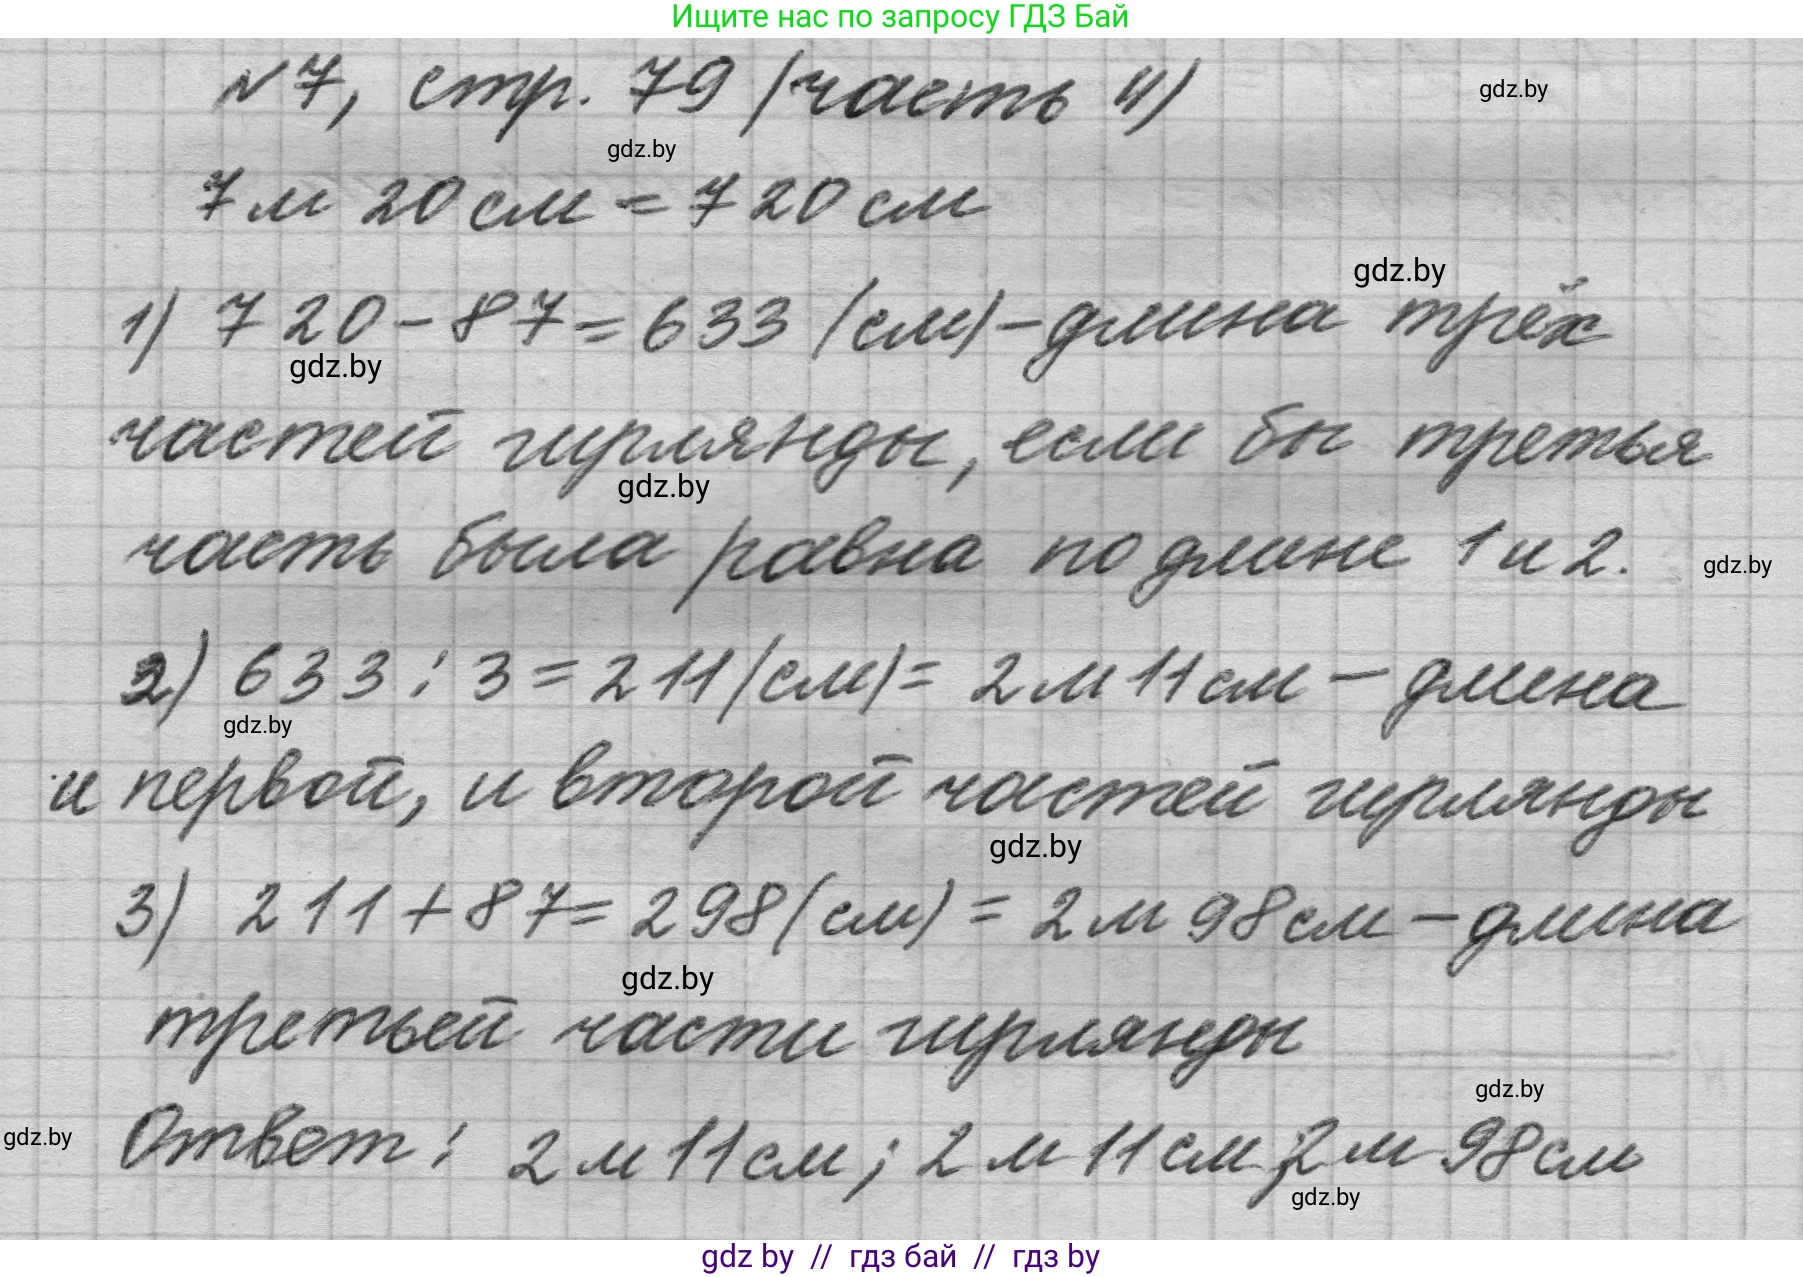 Ищите нас по запросу ГДЗ Бай
№7, стр. 79 (часть 4)
gdz.by
gdz.by
7 м 20 см = 720 см
gdz.by
1) 720 - 87 = 633 (см) - длина трёх
gdz.by
частей гирлянды, если бы третья
gdz.by
часть была равна по длине 1 и 2.
gdz.by
2) 633 : 3 = 211 (см) = 2 м 11 см - длина
gdz.by
и первой, и второй частей гирлянды
gdz.by
3) 211 + 87 = 298 (см) = 2 м 98 см - длина
gdz.by
третьей части гирлянды
gdz.by
gdz.by
Ответ: 2 м 11 см; 2 м 11 см; 2 м 98 см
gdz.by
gdz by // гдз бай // гдз by